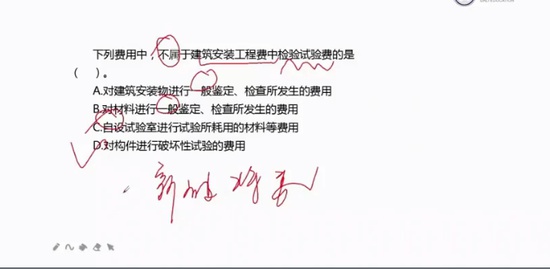 下列费用中，不属于建筑安装工程费中检验试验费的是
（ ）。
A.对建筑安装物进行一般鉴定、检查所发生的费用
B.对材料进行一般鉴定、检查所发生的费用
C.自设试验室进行试验所耗用的材料等费用
D.对构件进行破坏性试验的费用
新